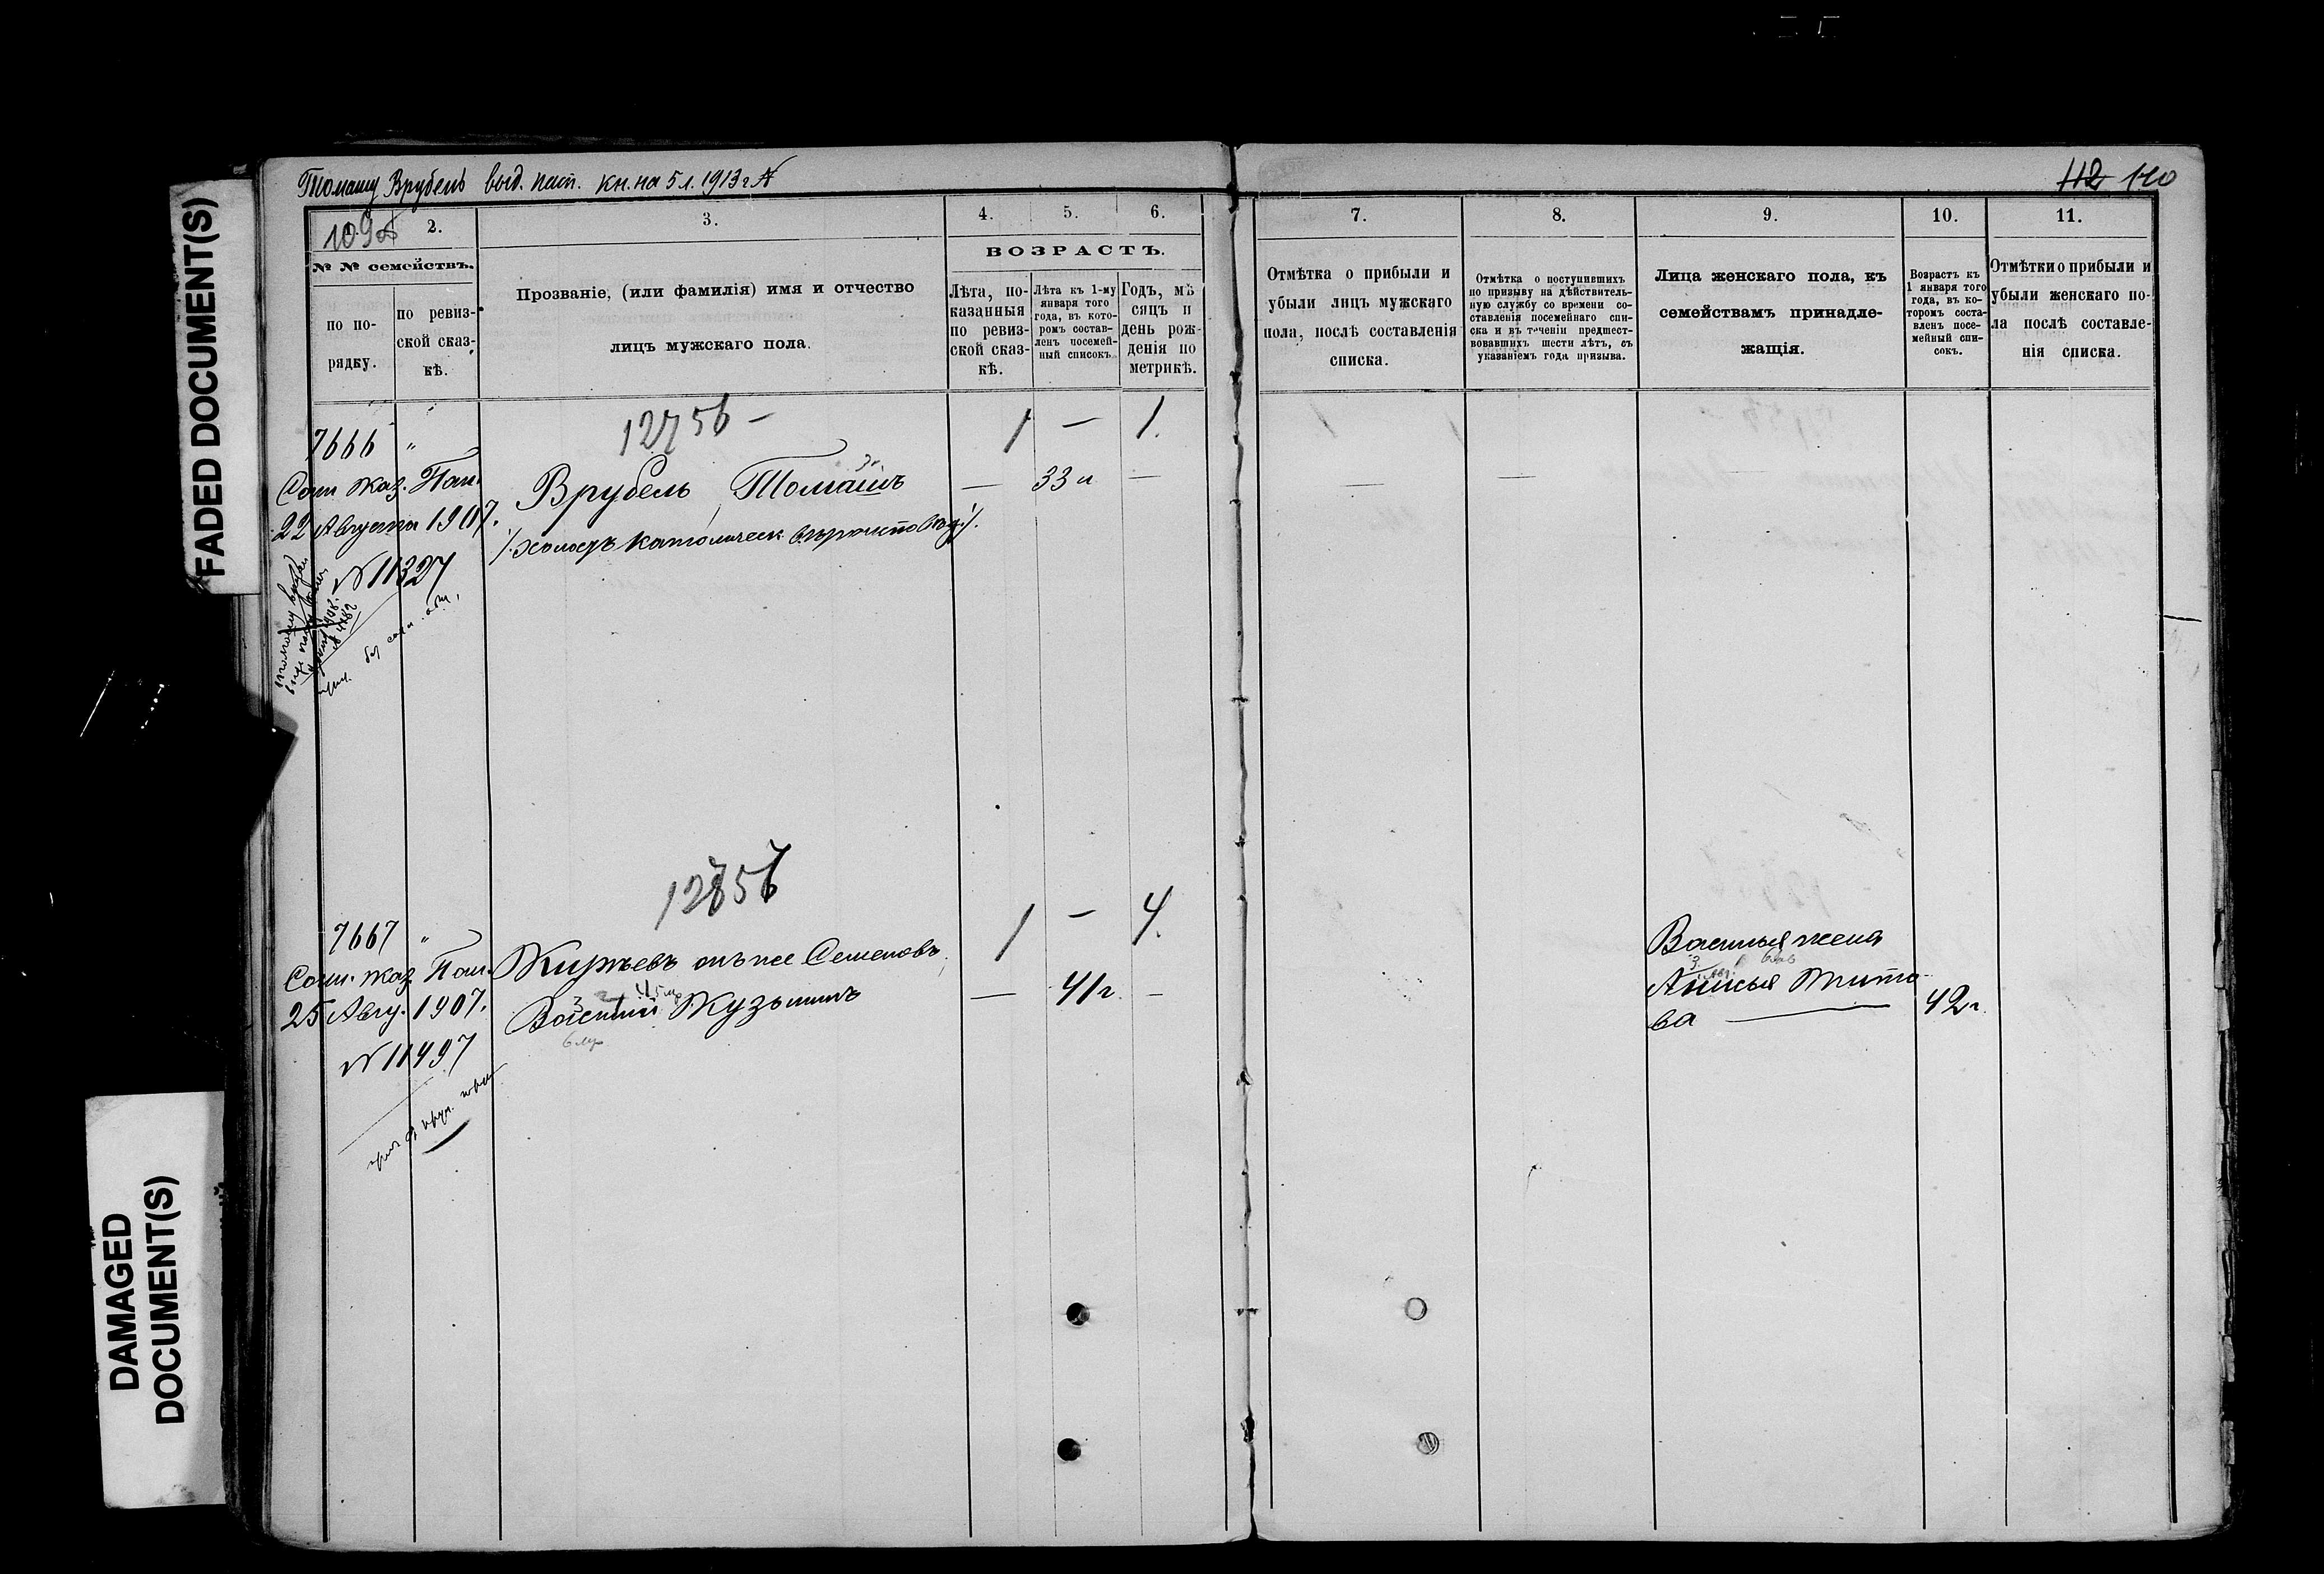 FADED DOCUMENT(S)
DAMAGED
DOCUMENT(S)
Томашу Врубель выд. пасп. кн. на 5 л. 1913 г.
112 110
109
2.
3.
4. 5. 6.
№ № семействъ.
по по-
рядку.
по ревиз-
ской сказ-
кѣ.
Прозваніе, (или фамилія) имя и отчество
лицъ мужскаго пола.
ВОЗРАСТЪ.
Лѣта, по-
казанныя
по ревиз-
ской сказ-
кѣ.
Лѣта къ 1-му
января того
года, въ кото-
ромъ состав-
ленъ посемей-
ный списокъ.
Годъ, мѣ
сяцъ и
день рож-
денія по
метрикѣ.
7.
Отмѣтка о прибыли и
убыли лицъ мужскаго
пола, послѣ составленія
списка.
8.
Отмѣтка о поступившихъ
по призыву на дѣйствитель-
ную службу со времени со-
ставленія посемейнаго спи-
ска и въ теченіи предшест-
вовавшихъ шести лѣтъ, съ
указаніемъ года призыва.
9.
Лица женскаго пола, къ
семействамъ принадле-
жащія.
10.
Возрастъ къ
1 января того
года, въ ко-
торомъ соста-
вленъ посе-
мейный спи-
сокъ.
11.
Отмѣтки о прибыли и
убыли женскаго по-
ла послѣ составле-
нія списка.
12756 –
7666 "
1 – 1.
Сош. Каз. Пал.
22 Августа 1907.
№ 11327
Врубель Томашъ
— 33 л —
холостъ католическ.
12757
7667 "
1 – 4.
Сош. Каз. Пал.
25 Авгу. 1907.
№ 11497
Кирѣевъ онъ же Семеновъ
Василий Кузьминъ
— 41 г. –
Васильея жена
Анисья Тито-
ва —
42 г.